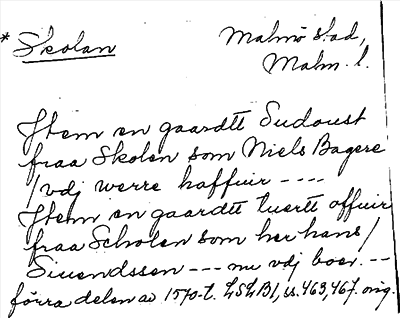 * Skolan
Malmö stad,
Malm. l.
Jtem en gaardtt Sudoust
fraa Skolen som Niels Bagere
/vdj werre haffuir ----
Jtem en gaardtt tuertt offuir
fraa Scholen som her hans/
Siuendssen --- nu vdj boer. --
förra delen av 1570-t. LSLB1, s. 463, 467. orig.